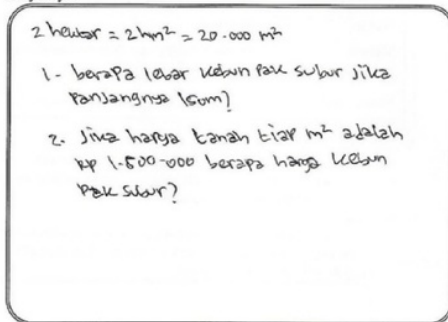 2 hektar = 2 hm² = 20.000 m²
1. berapa lebar kebun pak subur jika
panjangnya 150m?
2. Jika harga tanah tiap m² adalah
Rp 1.500.000 berapa harga kebun
pak subur?